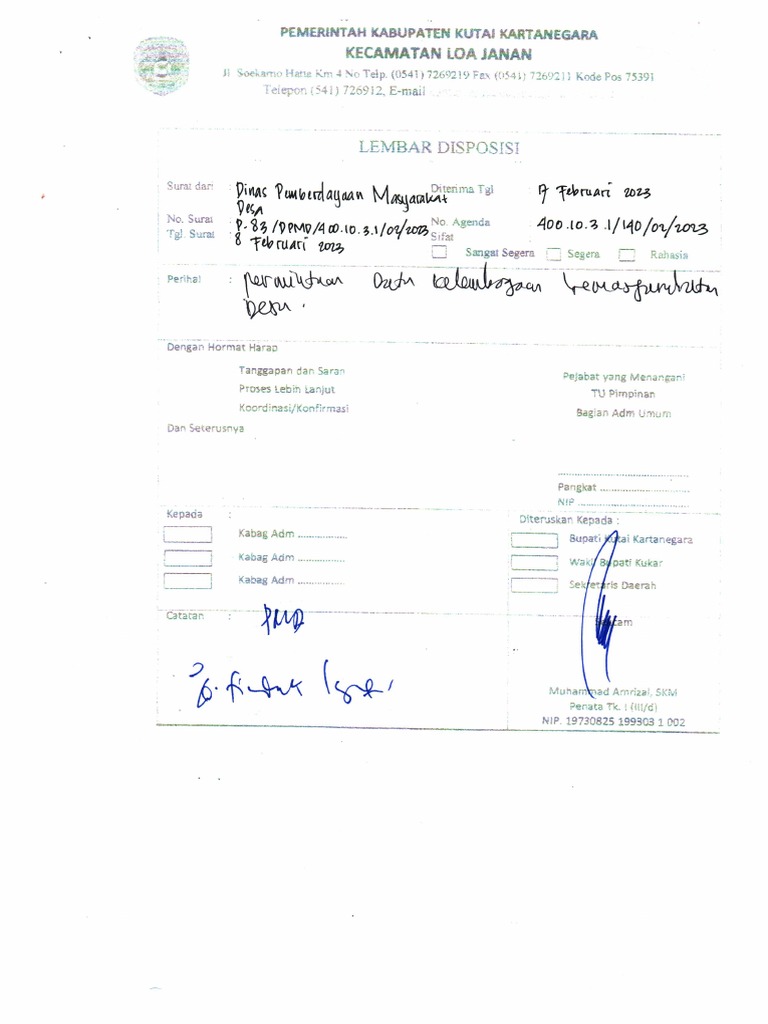 PEMERINTAH KABUPATEN KUTAI KARTANEGARA
KECAMATAN LOA JANAN
Jl. Soekarno Hatta Km 4 No Telp. (0541) 7269219 Fax (0541) 7269211 Kode Pos 75391
Telepon (541) 726912, E-mail
LEMBAR DISPOSISI
Surat dari : Dinas Pemberdayaan Masyarakat Desa
Diterima Tgl : 17 Februari 2023
No. Surat : P-83/DPMD/400.10.3.1/02/2023
No. Agenda : 400.10.3.1/140/02/2023
Tgl. Surat : 8 Februari 2023
Sifat
Sangat Segera Segera Rahasia
Perihal : permintaan Data Kelembagaan kemasyarakatan
Desa.
Dengan Hormat Harap
Tanggapan dan Saran
Proses Lebih Lanjut
Koordinasi/Konfirmasi
Dan Seterusnya
Pejabat yang Menangani
TU Pimpinan
Bagian Adm Umum
Pangkat ..............................
NIP .....................................
Kepada :
Kabag Adm ................
Kabag Adm ...............
Kabag Adm ...............
Diteruskan Kepada :
Bupati Kutai Kartanegara
Wakil Bupati Kukar
Sekretaris Daerah
Catatan : PMD
Sekcam
Muhammad Amrizal, SKM
Penata Tk. I (III/d)
NIP. 19730825 199303 1 002